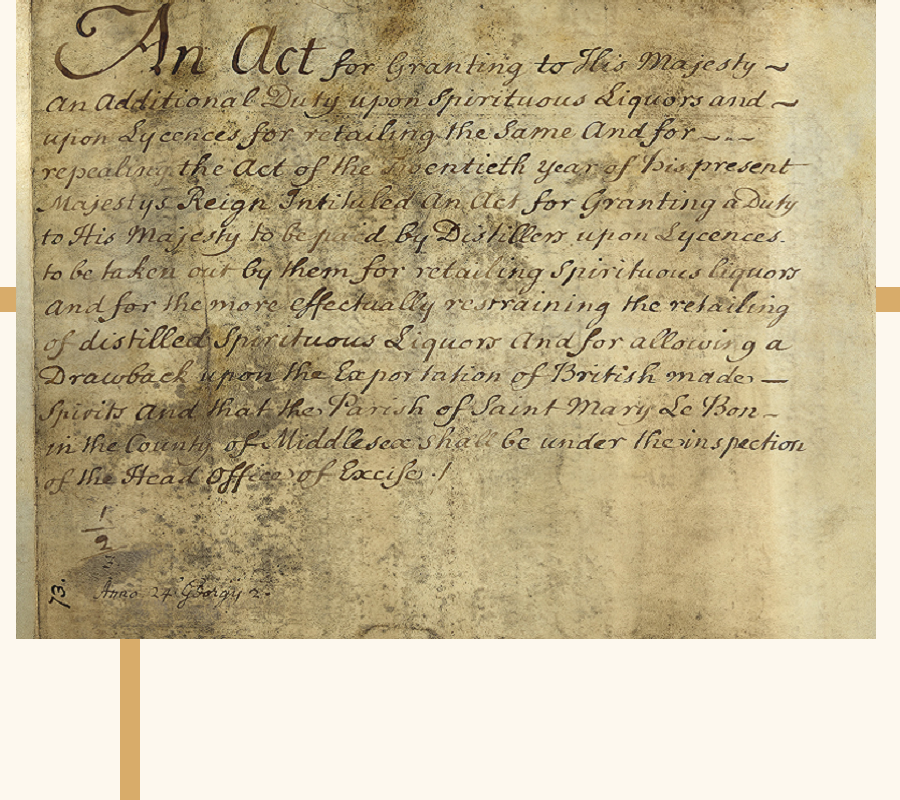 An Act for Granting to His Majesty ~
an Additional Duty upon Spirituous Liquors and ~
upon Lycences for retailing the Same And for
repealing the Act of the Twentieth year of his present
Majestys Reign Intituled An Act for Granting a Duty
to His Majesty to be paid by Distillers upon Lycences
to be taken out by them for retailing Spirituous liquors
and for the more effectually restraining the retailing
of distilled Spirituous Liquors And for allowing a
Drawback upon the Exportation of British made —
Spirits And that the Parish of Saint Mary Le Bon -
in the County of Middlesex shall be under the inspection
of the Head Office of Excise ./
1
2
73.
Anno 24° Georgij 2.